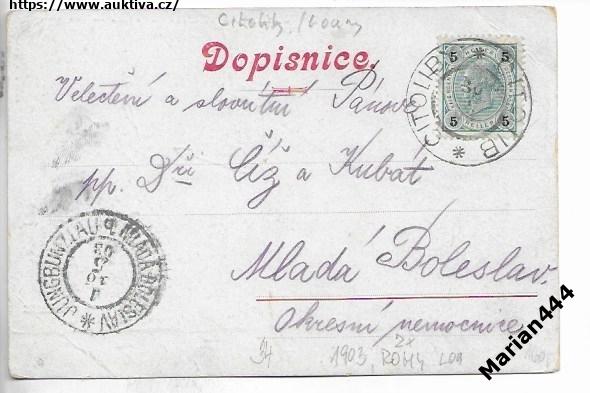 https://www.auktiva.cz/
Citoliby / Louny
Dopisnice.
5 5
5 5
CITOLIB * CITOLIB *
Velectění a slovutní Pánové
pp. Dři Číž a Kubát
JUNGBUNZLAU * MLADÁ BOLESLAV *
Mladá Boleslav.
Okresní nemocnice
34 1903, 2x ROHY LOM
Marian444